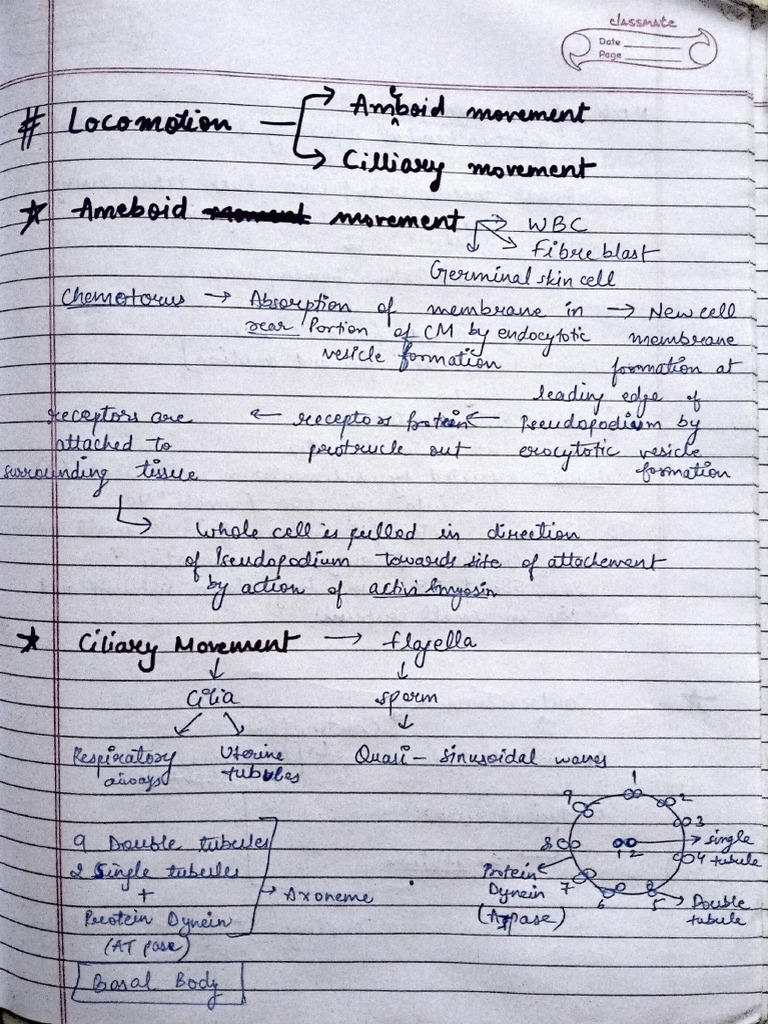 classmate
Date
Page
# Locomotion → Ameboid movement
→ Cilliary movement
★ Ameboid movement → WBC
→ Fibreblast
→ Germinal skin cell
Chemotorus → Absorption of membrane in → New cell
rear Portion of CM by endocytotic membrane
vesicle formation formation at
leading edge of
receptors are ← receptors protein ← Pseudopodium by
attached to protrude out exocytotic vesicle
surrounding tissue formation
↳ Whole cell is pulled in direction
of Pseudopodium towards site of attachement
by action of
★ Ciliary Movement → flagella
↓ ↓
Cilia sperm
↓
Respiratory Uterine Quasi - Sinusoidal waves
airways tubules
9 Double tubules
2 Single tubules
+
Protein Dynein
(AT pase)
→ Axoneme
Basal Body
1
2
3
4
5
6
7
8
9
1 2
→ single
tubule
Protein
Dynein
(ATpase)
→ Double
tubule